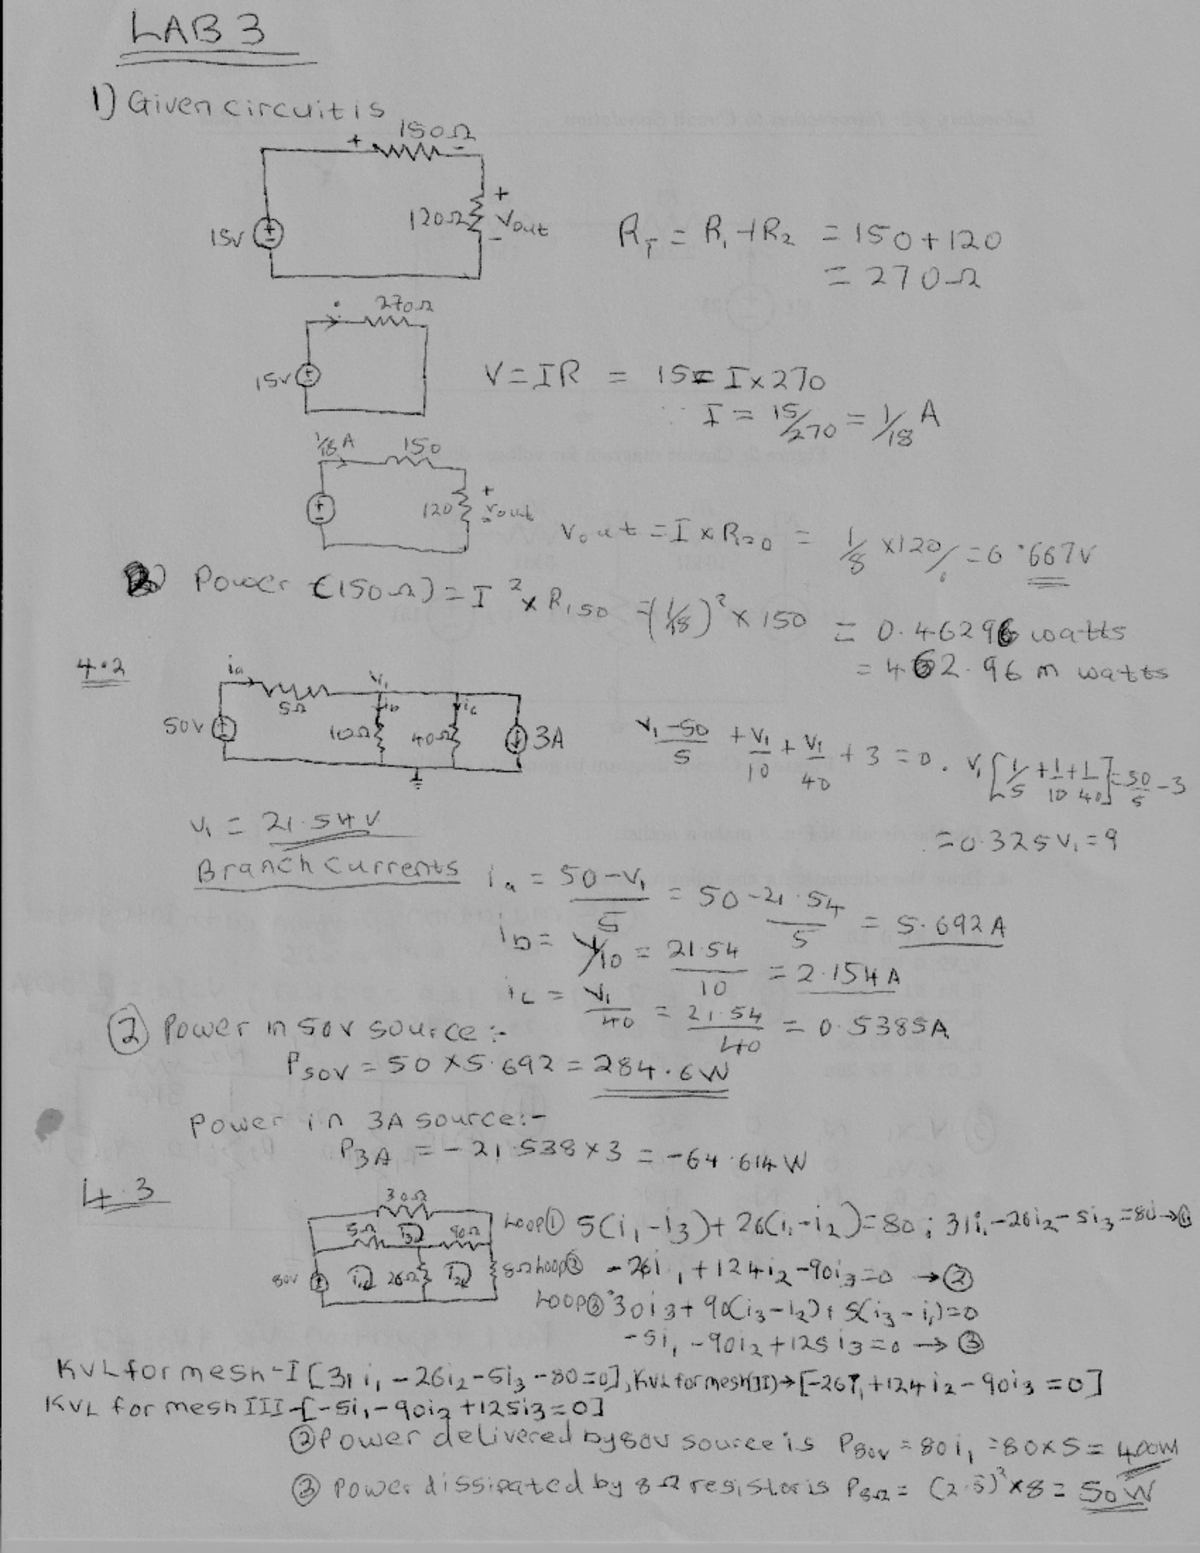 LAB 3
1) Given circuit is
150Ω
+ -
15V
120Ω
+
Vout
-
R_T = R₁ + R₂ = 150 + 120
= 270Ω
i 270Ω
15V
V = IR = 15 = I × 270
∴ I = 15/270 = 1/18 A
1/18 A 150
120
+
Vout
-
Vout = I × R₁₂₀ = 1/8 × 120/1 = 6.667V
2) Power (150Ω) = I² × R₁₅₀ = (1/18)² × 150 = 0.46296 watts
= 462.96 m watts
4.2
ia V₁
5Ω ib ic
50V 10Ω 40Ω 3A
V₁-50/5 + V₁/10 + V₁/40 + 3 = 0. V₁[1/5 + 1/10 + 1/40] = 50/5 - 3
= 0.325V₁ = 9
V₁ = 21.54V
Branch Currents ia = 50-V₁/5 = 50-21.54/5 = 5.692A
ib = V₁/10 = 21.54/10 = 2.154A
ic = V₁/40 = 21.54/40 = 0.5385A
② Power in 50V source :-
P50V = 50 × 5.692 = 284.6W
Power in 3A source:-
P3A = -21.538 × 3 = -64.614W
4.3
30Ω
5Ω i₃ 90Ω
80V i₁ 26Ω i₂ 8Ω
Loop① 5(i₁-i₃) + 26(i₁-i₂) = 80 ; 31i₁-26i₂-5i₃ = 80 → ①
Loop② -26i₁ + 124i₂ - 90i₃ = 0 → ②
Loop③ 30i₃ + 90(i₃-i₂) + 5(i₃-i₁) = 0
-5i₁ - 90i₂ + 125i₃ = 0 → ③
KVL for mesh-I [31i₁ - 26i₂ - 5i₃ - 80 = 0], KVL for mesh(II) → [-26i₁ + 124i₂ - 90i₃ = 0]
KVL for mesh III - [-5i₁ - 90i₂ + 125i₃ = 0]
② Power delivered by 80V source is P80V = 80i₁ = 80 × 5 = 400W
③ Power dissipated by 8Ω resistor is P8Ω = (2.5)² × 8 = 50W